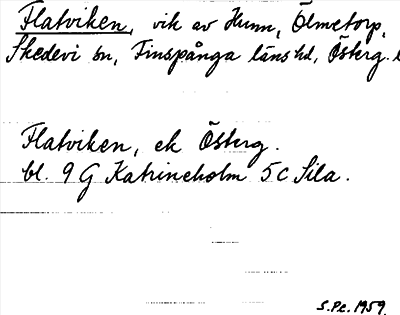 Flatviken, vik av Hunn, Ölmetorp,
Skedevi sn, Finspånga läns hd, Österg. l
Flatviken, ek Österg.
bl. 9 G Katrineholm 5 c Sila.
S.Pc. 1959.